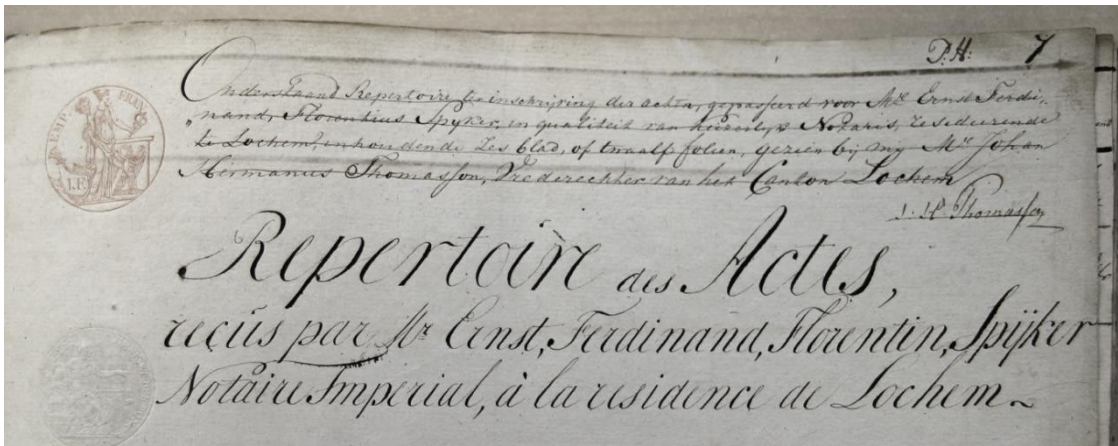 P.H. 7
Onderstaand Repertoire ter inschrijving der acten, gepasseerd voor Mr. Ernst Ferdi„
„nand, Florentius Spijker, in qualiteit van keizerl.k Notaris, resideerende
te Lochem, inhoudende zes blad, of twaalf folien, gezien bij mij Mr. Johan
Hermanus Thomasson, Vrederechter van het Canton Lochem
J. H. Thomasson
Repertoire des Actes,
recus par Mr Ernst, Ferdinand, Florentin, Spijker
Notaire Imperial, à la residence de Lochem~